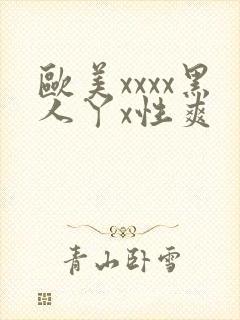 歐美xxxx黑
人丫x性爽
青山卧雪